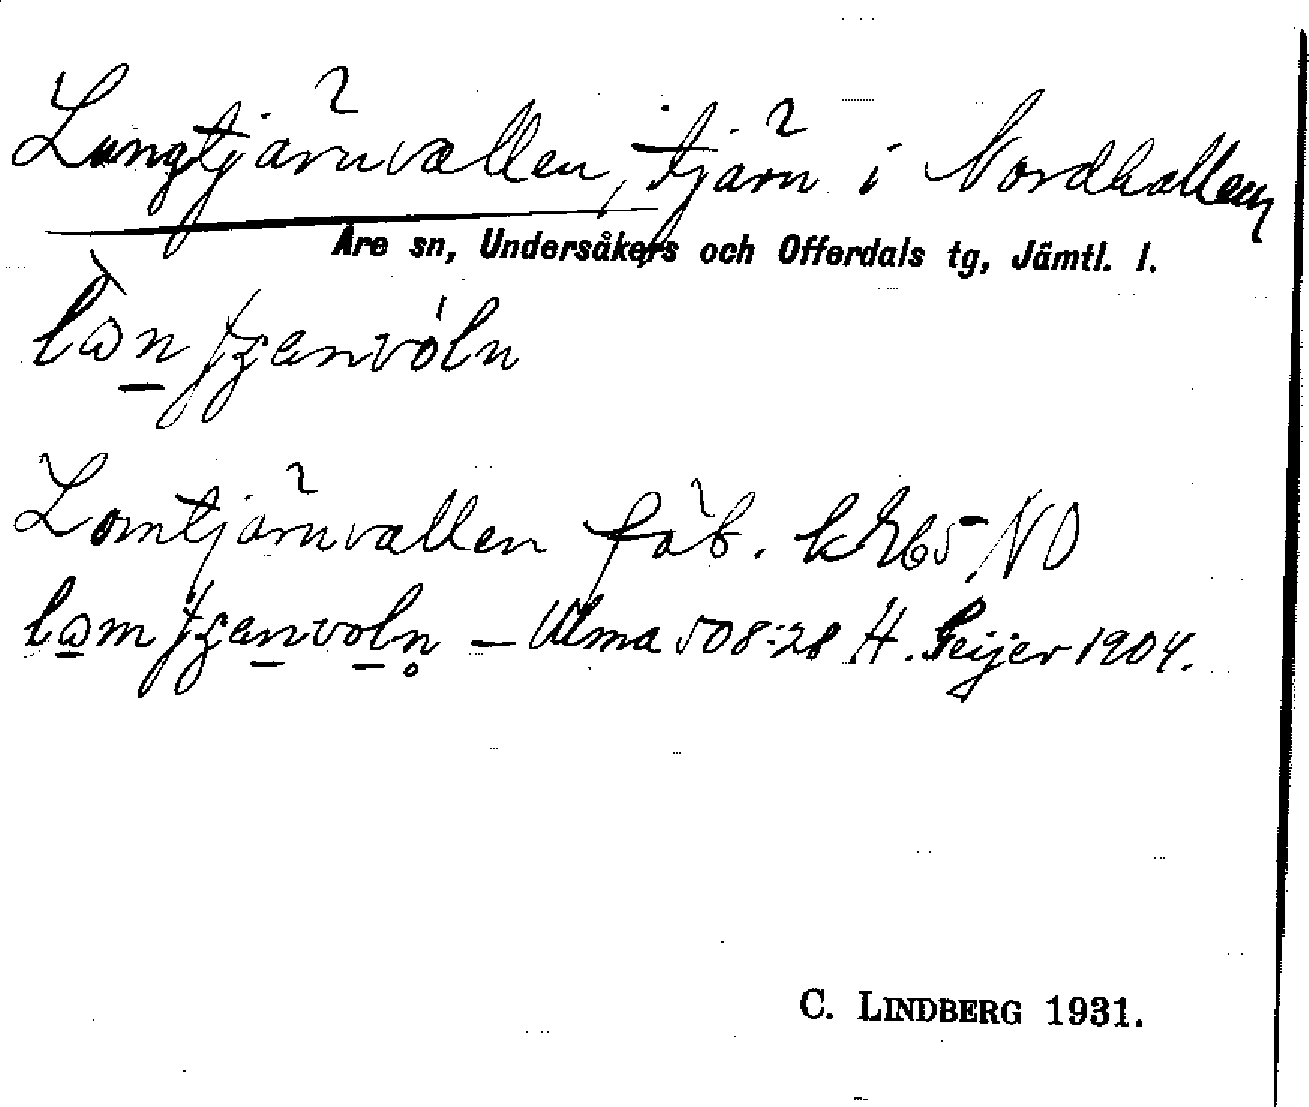 Lungtjärnvallen, tjärn i Nordhallen
Åre sn, Undersåkers och Offerdals tg, Jämtl. l.
Lomtjärnvallen fäb. k 265 NO
– Ulma 508:28 H. Geijer 1904.
C. LINDBERG 1931.